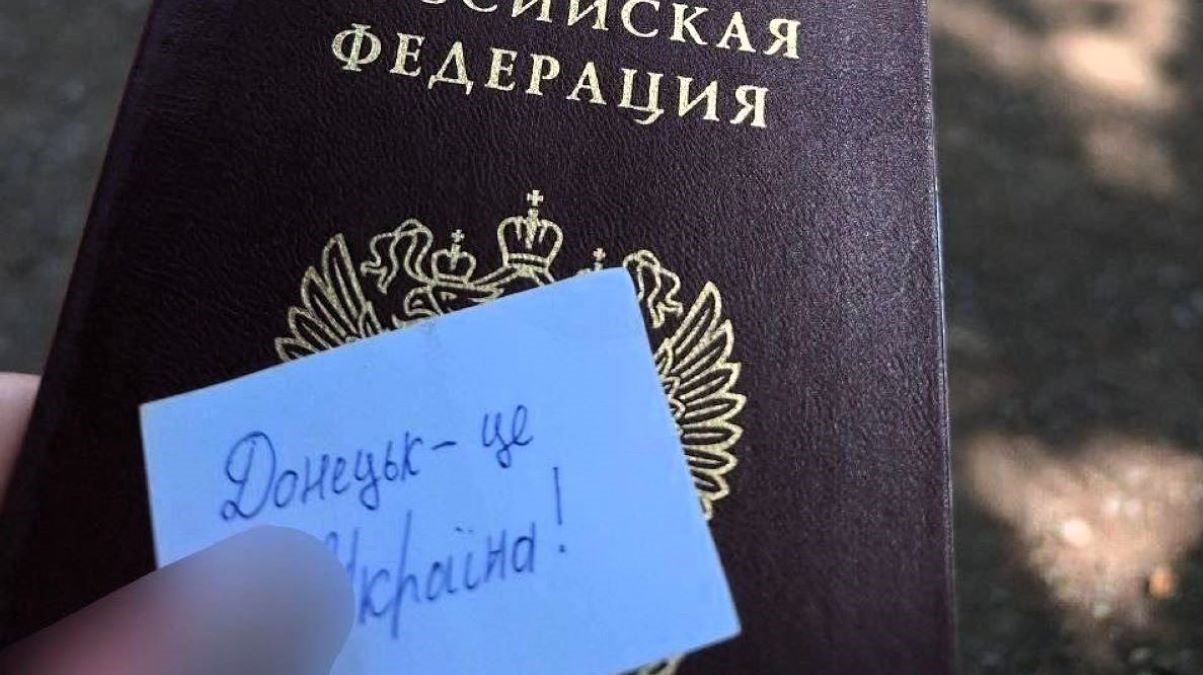 РОССИЙСКАЯ
ФЕДЕРАЦИЯ
Донецьк - це
Україна!